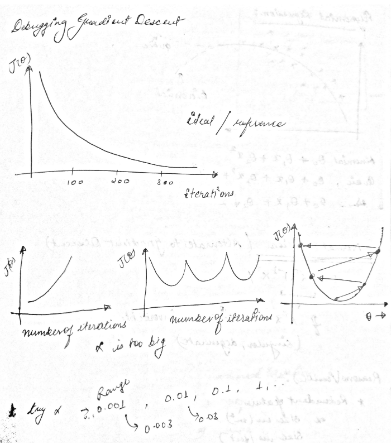 Debugging Gradient Descent
J(θ)
ideal / reference
100 200 300
iterations
J(θ) J(θ) J(θ)
number of iterations number of iterations θ →
α is too big
Range
try α 0.001, 0.01, 0.1, 1, ...
0.003 0.03